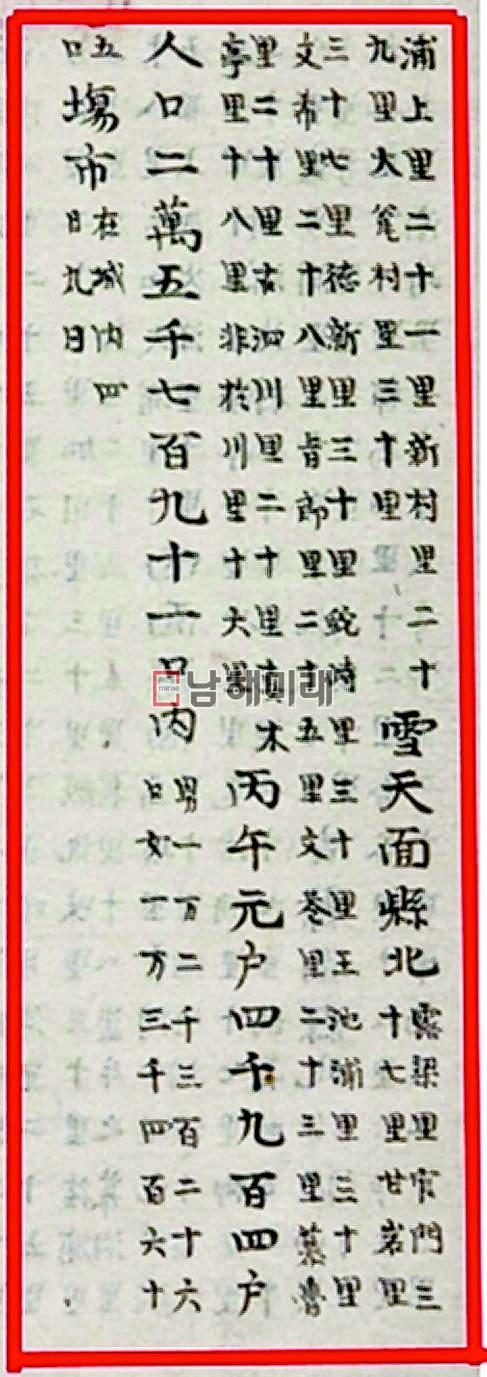 浦上里二十一里新村里二十
九里大村里三十里
雪天面縣北
露梁里官門三
十七里甘岩里
三十七里德新里三十里鮫里三十里王池浦里三十里
文希里二十八里肯郎里二十五里文巷里二十三里慕
里二十里古泗川里二十里真木
亭里十八里非於川里十六里
丙午元户四千九百四户
人口二萬五千七百九十一口內
男一万二千三百二十六
口女一万三千四百六十
五
口
塲市
在城內四
日九日
mirae 남해미래